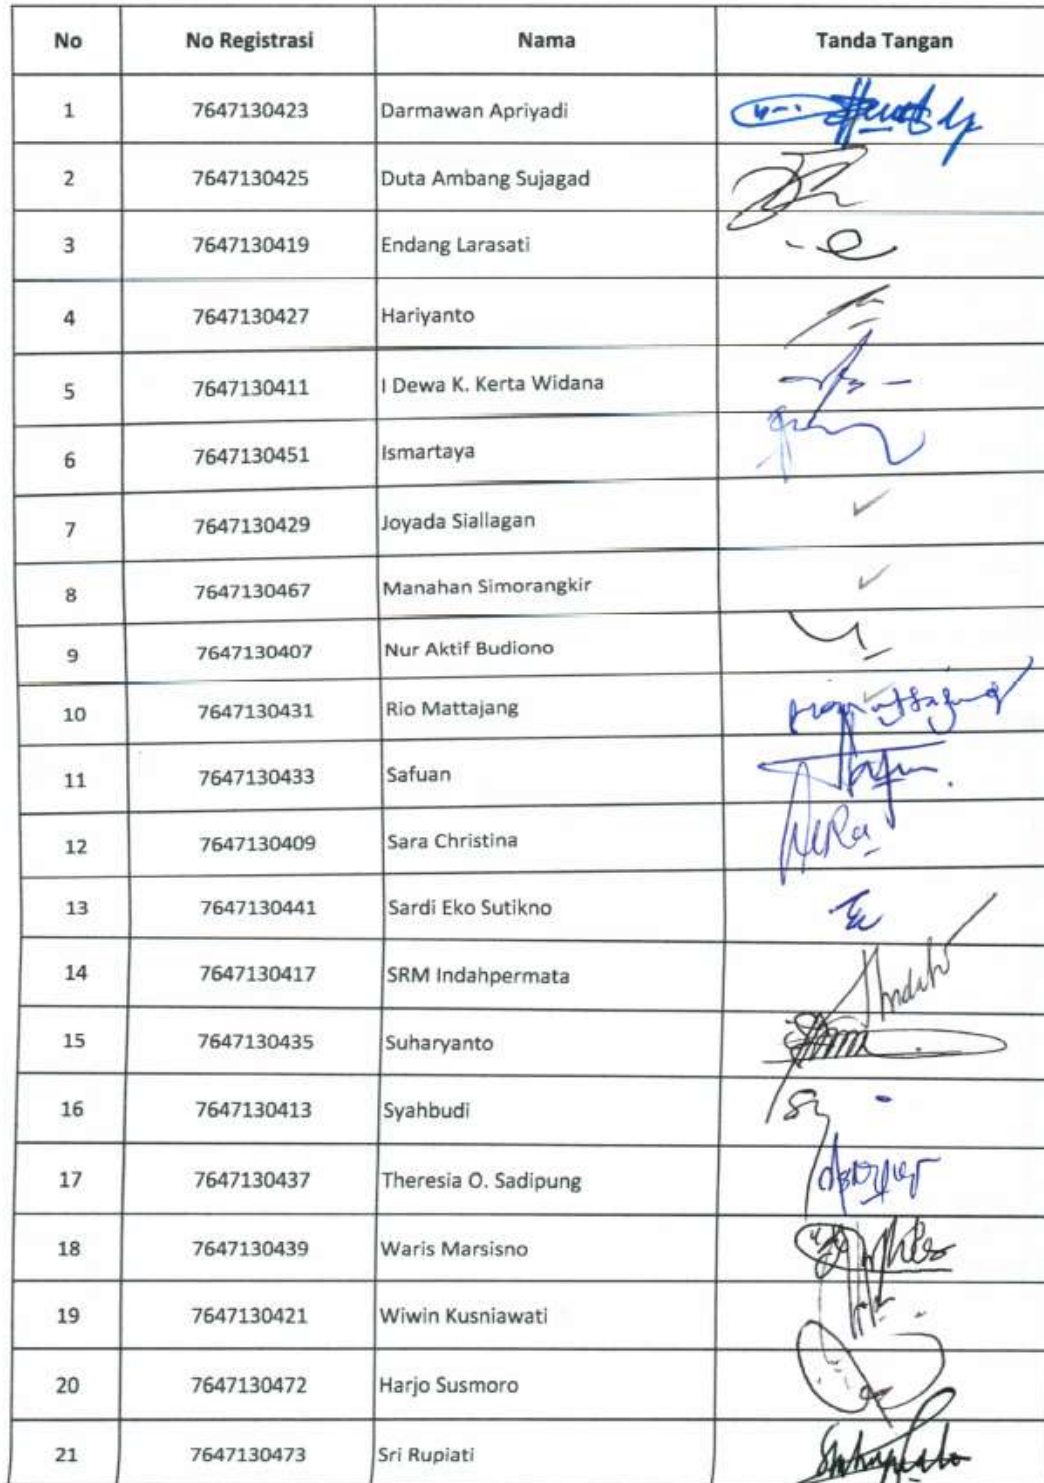 No No Registrasi Nama Tanda Tangan
1 7647130423 Darmawan Apriyadi
2 7647130425 Duta Ambang Sujagad
3 7647130419 Endang Larasati
4 7647130427 Hariyanto
5 7647130411 I Dewa K. Kerta Widana
6 7647130451 Ismartaya
7 7647130429 Joyada Siallagan
8 7647130467 Manahan Simorangkir
9 7647130407 Nur Aktif Budiono
10 7647130431 Rio Mattajang
11 7647130433 Safuan
12 7647130409 Sara Christina
13 7647130441 Sardi Eko Sutikno
14 7647130417 SRM Indahpermata
15 7647130435 Suharyanto
16 7647130413 Syahbudi
17 7647130437 Theresia O. Sadipung
18 7647130439 Waris Marsisno
19 7647130421 Wiwin Kusniawati
20 7647130472 Harjo Susmoro
21 7647130473 Sri Rupiati